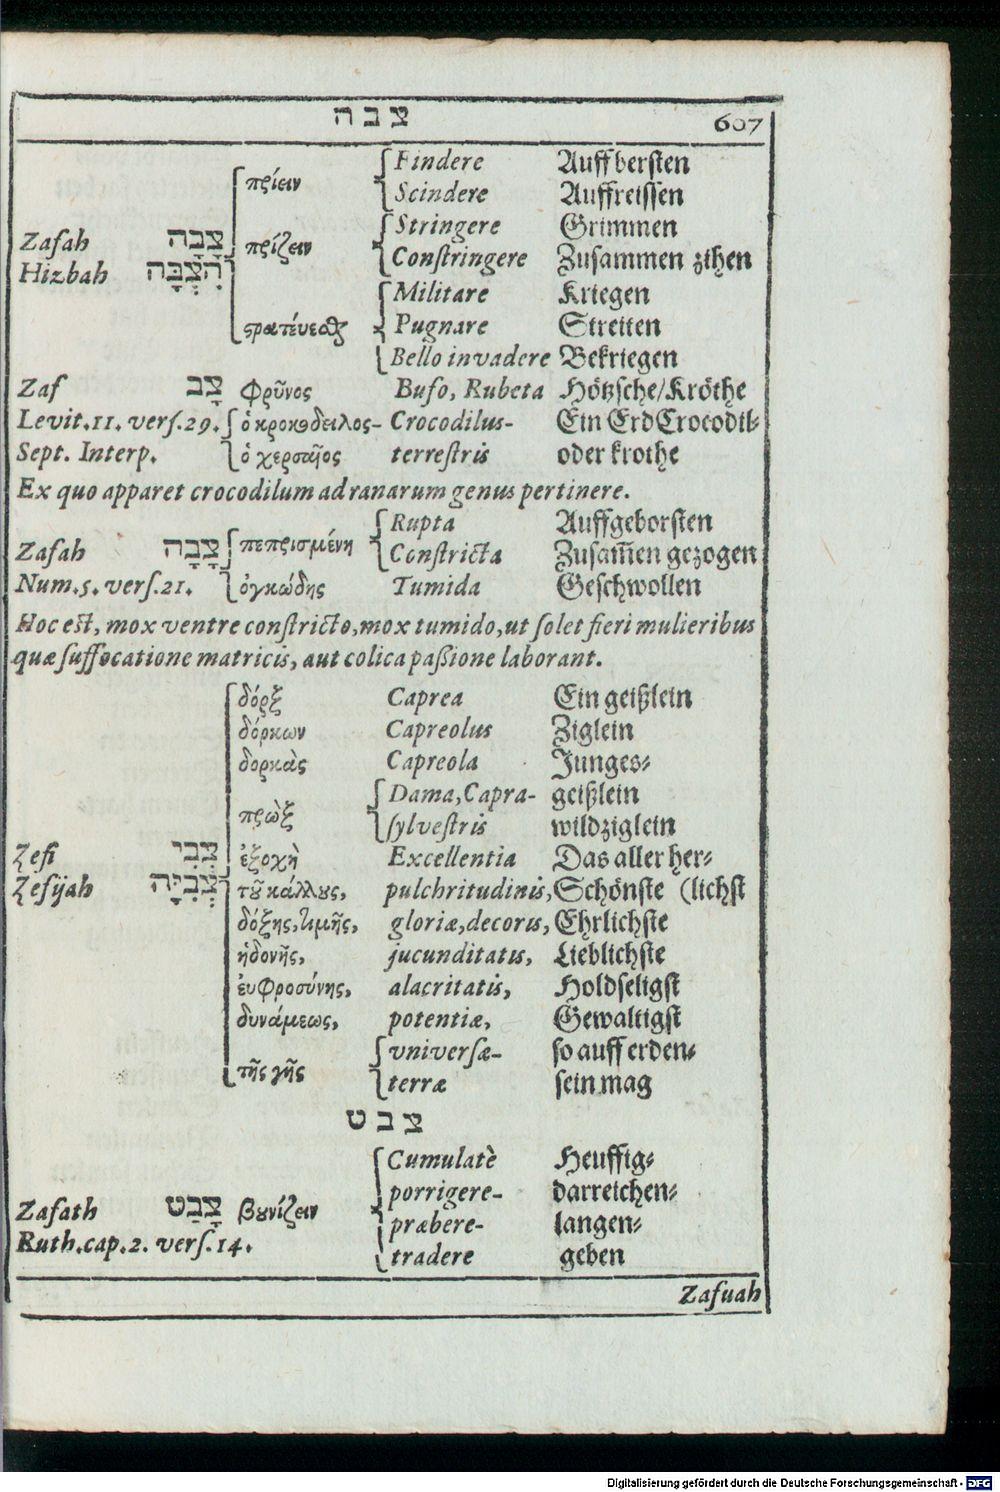 צבה 607
πρίειν { Findere Auffbersten
Scindere Auffreissen
Zafah צָבָה πρίζειν { Stringere Grimmen
Hizbah הִצְבָּה Constringere Zusammen zihen
Militare Kriegen
ϛρατέυεαζ Pugnare Streiten
Bello invadere Bekriegen
Zaf צָב φρῦνος Bufo, Rubeta Hötzsche/Kröthe
Levit.11. vers.29. ὁ κροκόδειλος- Crocodilus- Ein ErdCrocodil-
Sept. Interp. ὁ χερσαῖος terrestris oder krothe
Ex quo apparet crocodilum ad ranarum genus pertinere.
Rupta Auffgeborsten
Zafah צָבָה πεπρισμένη Constricta Zusam̃en gezogen
Num.5. vers.21. ὀγκώδης Tumida Geschwollen
Hoc est, mox ventre constricto, mox tumido, ut solet fieri mulieribus
quæ suffocatione matricis, aut colica paßione laborant.
δόρξ Caprea Ein geißlein
δόρκων Capreolus Ziglein
δορκὰς Capreola Junges-
πρὼξ { Dama, Capra- geißlein
sylvestris wildziglein
Zefi צְבִי ἐξοχὴ Excellentia Das aller her-
Zefijah צְבִיָּה τȣ͂ κάλλους, pulchritudinis, Schönste (lichst
δόξης, τιμῆς, gloriæ, decoris, Ehrlichste
ἡδονῆς, jucunditatis, Lieblichste
ἐυφροσύνης, alacritatis, Holdseligst
δυνάμεως, potentiæ, Gewaltigst
τῆς γῆς { universæ- so auff erden-
terræ sein mag
צבט
Cumulatè Heuffig-
porrigere- darreichen-
Zafath צָבַט βȣνίζειν præbere- langen-
Ruth.cap.2. vers.14. tradere geben
Zafuah
Digitalisierung gefördert durch die Deutsche Forschungsgemeinschaft - DFG